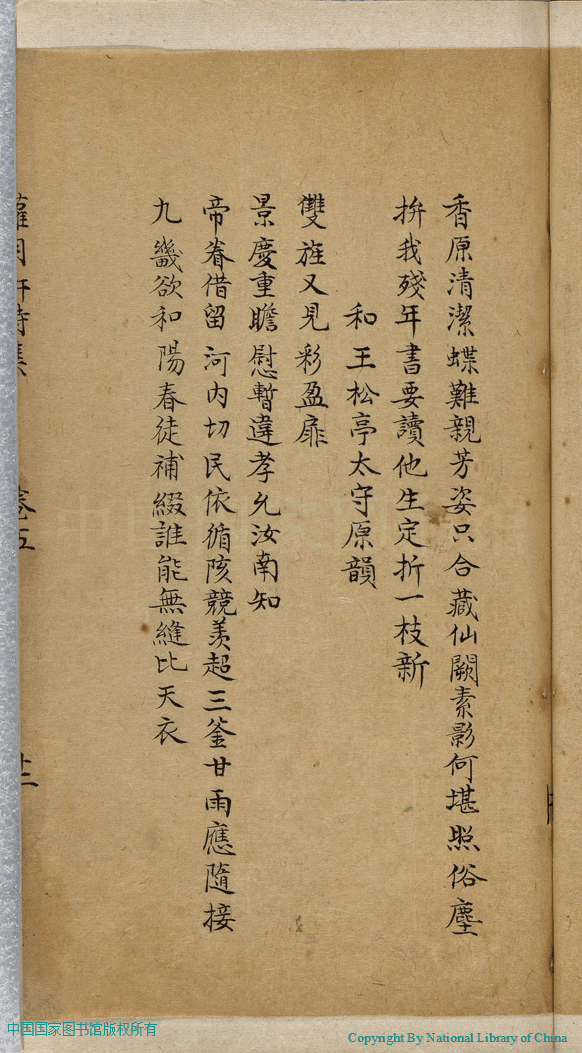 香原清潔蝶難親芳姿只合藏仙闕素影何堪照俗塵
拚我殘年書要讀他生定折一枝新
和王松亭太守原韻
雙旌又見彩盈扉
景慶重瞻慰暫違孝允汝南知
帝眷借留河內切民依循陔競羨超三釜甘雨應隨接
九畿欲和陽春徒補綴誰能無縫比天衣
卷五
十二
中国国家图书馆版权所有
Copyright By National Library of China